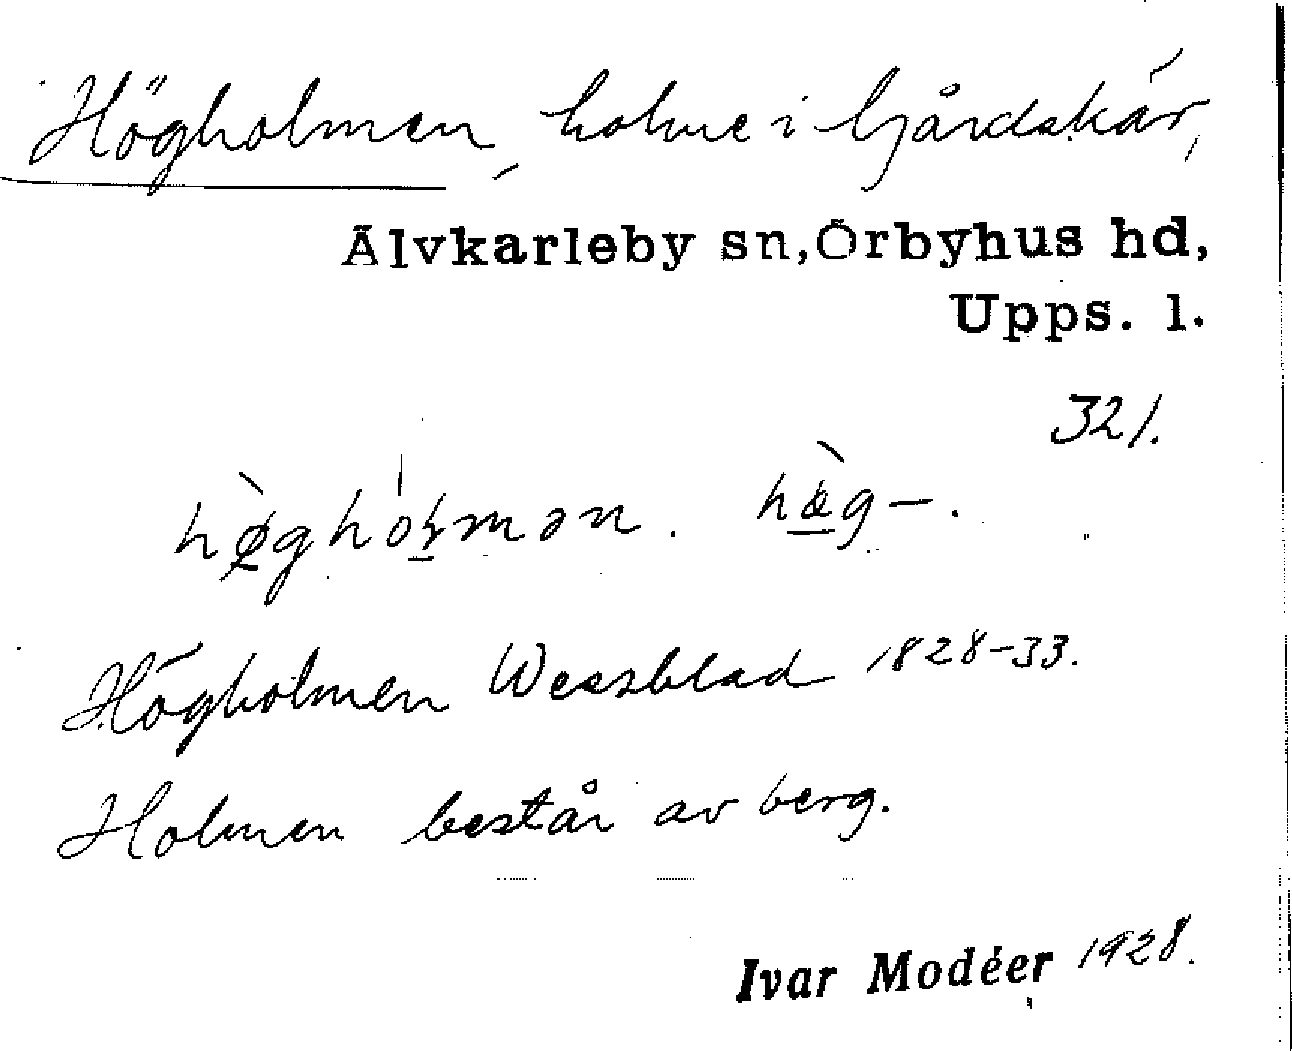 Högholmen, holme i ljårdskär,
Älvkarleby sn, Örbyhus hd,
Upps. l.
321.
hø̀ghóɽmən. hæ̀g–.
Högholmen Wessblad 1828-33.
Holmen består av berg.
Ivar Modéer 1928.